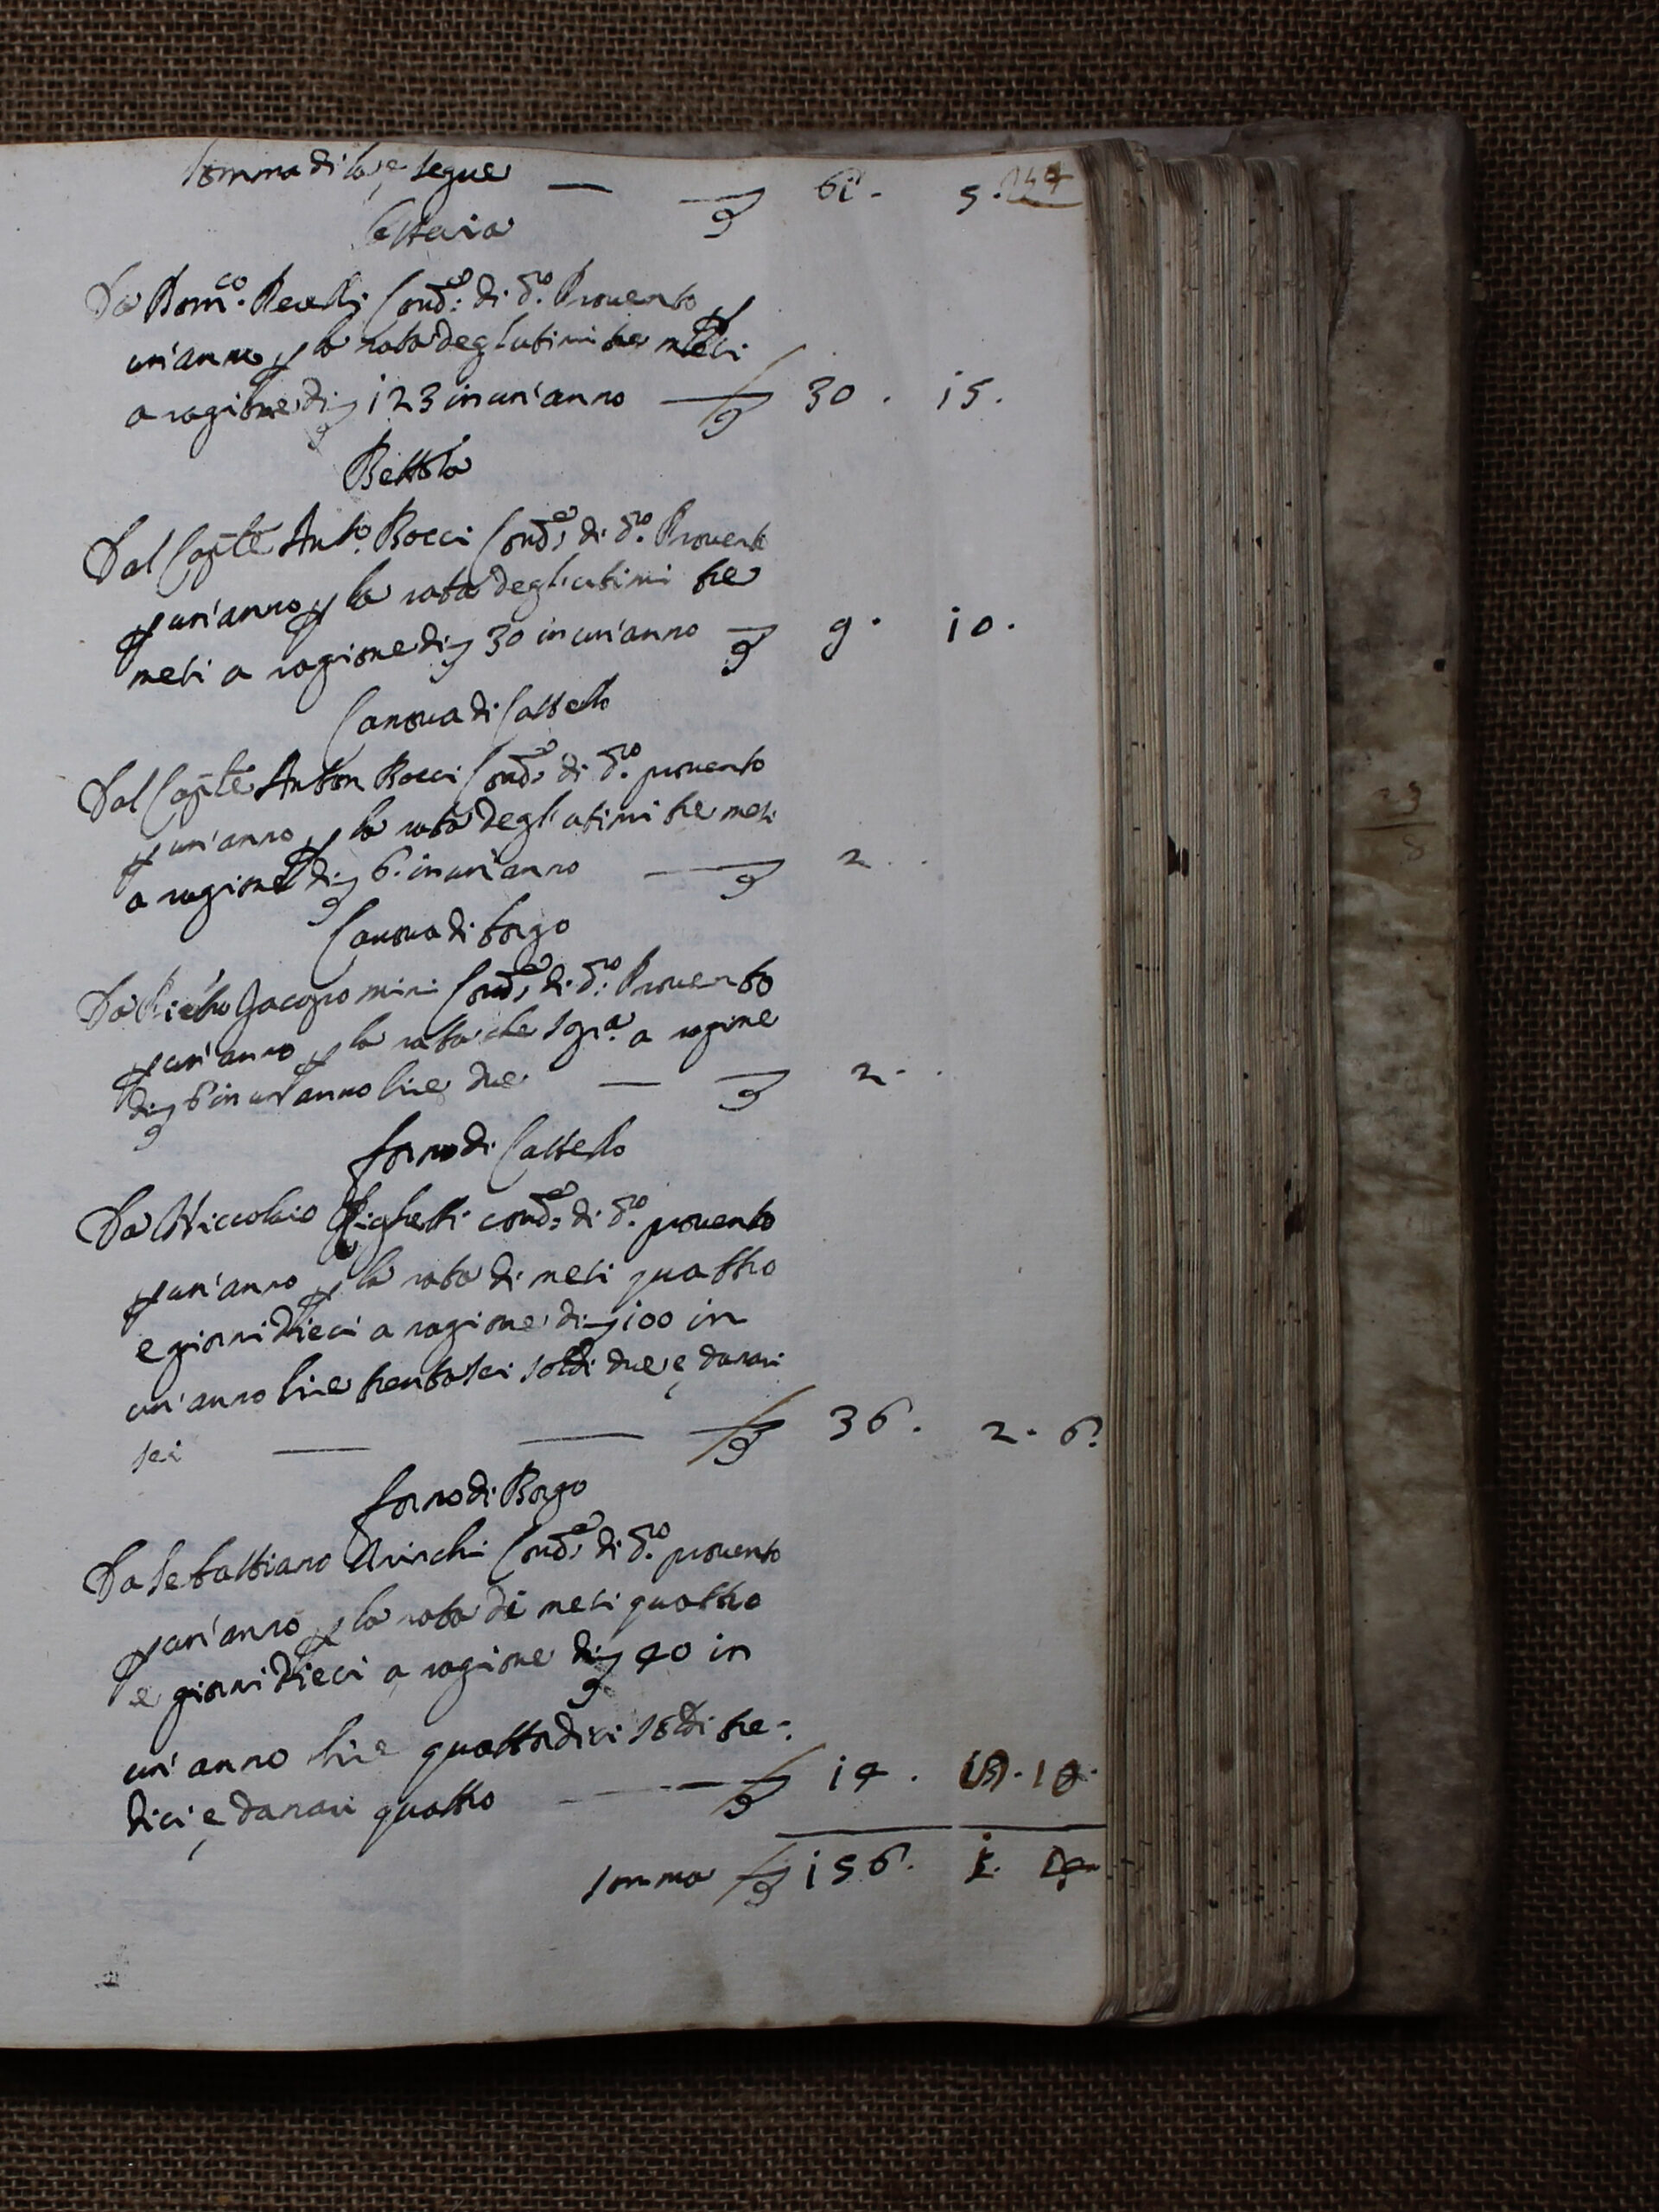 Somma di là e segue — £ 61. 5. 147
Osteria
Da Dom.co Recelli Cond.e di d.o Provento
un'anno p la rata degl'ultimi tre mesi
a ragione di £ 123 in un'anno — £ 30. 15.
Bettola
Dal Capite Ant.o Bocci Cond.e di d.o Provento
p un'anno p la rata degl'ultimi tre
mesi a ragione di £ 30 in un'anno — £ 9. 10.
Canova di Castello
Dal Capite Anton Bocci Cond.e di d.o provento
p un'anno p la rata degl'ultimi tre mesi
a ragione di £ 6. in un'anno — £ 2. .
Canova di borgo
Da Jacopo mini Cond.e di d.o Provento
p un'anno p la rata che s.a a ragione
di £ 6 in un'anno lire due — £ 2. .
forno di Castello
Da Niccolaio Righetti cond.e di d.o provento
p un'anno p la rata di mesi quattro
e giorni dieci a ragione di £ 100 in
un'anno lire trentasei soldi due e danari
sei — — £ 36. 2. 6.
forno di Borgo
Da Sebastiano Cond.e di d.o provento
p un'anno p la rata di mesi quattro
e giorni dieci a ragione di £ 40 in
un'anno lire quattordici soldi tre-
dici e danari quattro — £ 14.
Somma £ 156.
29
8